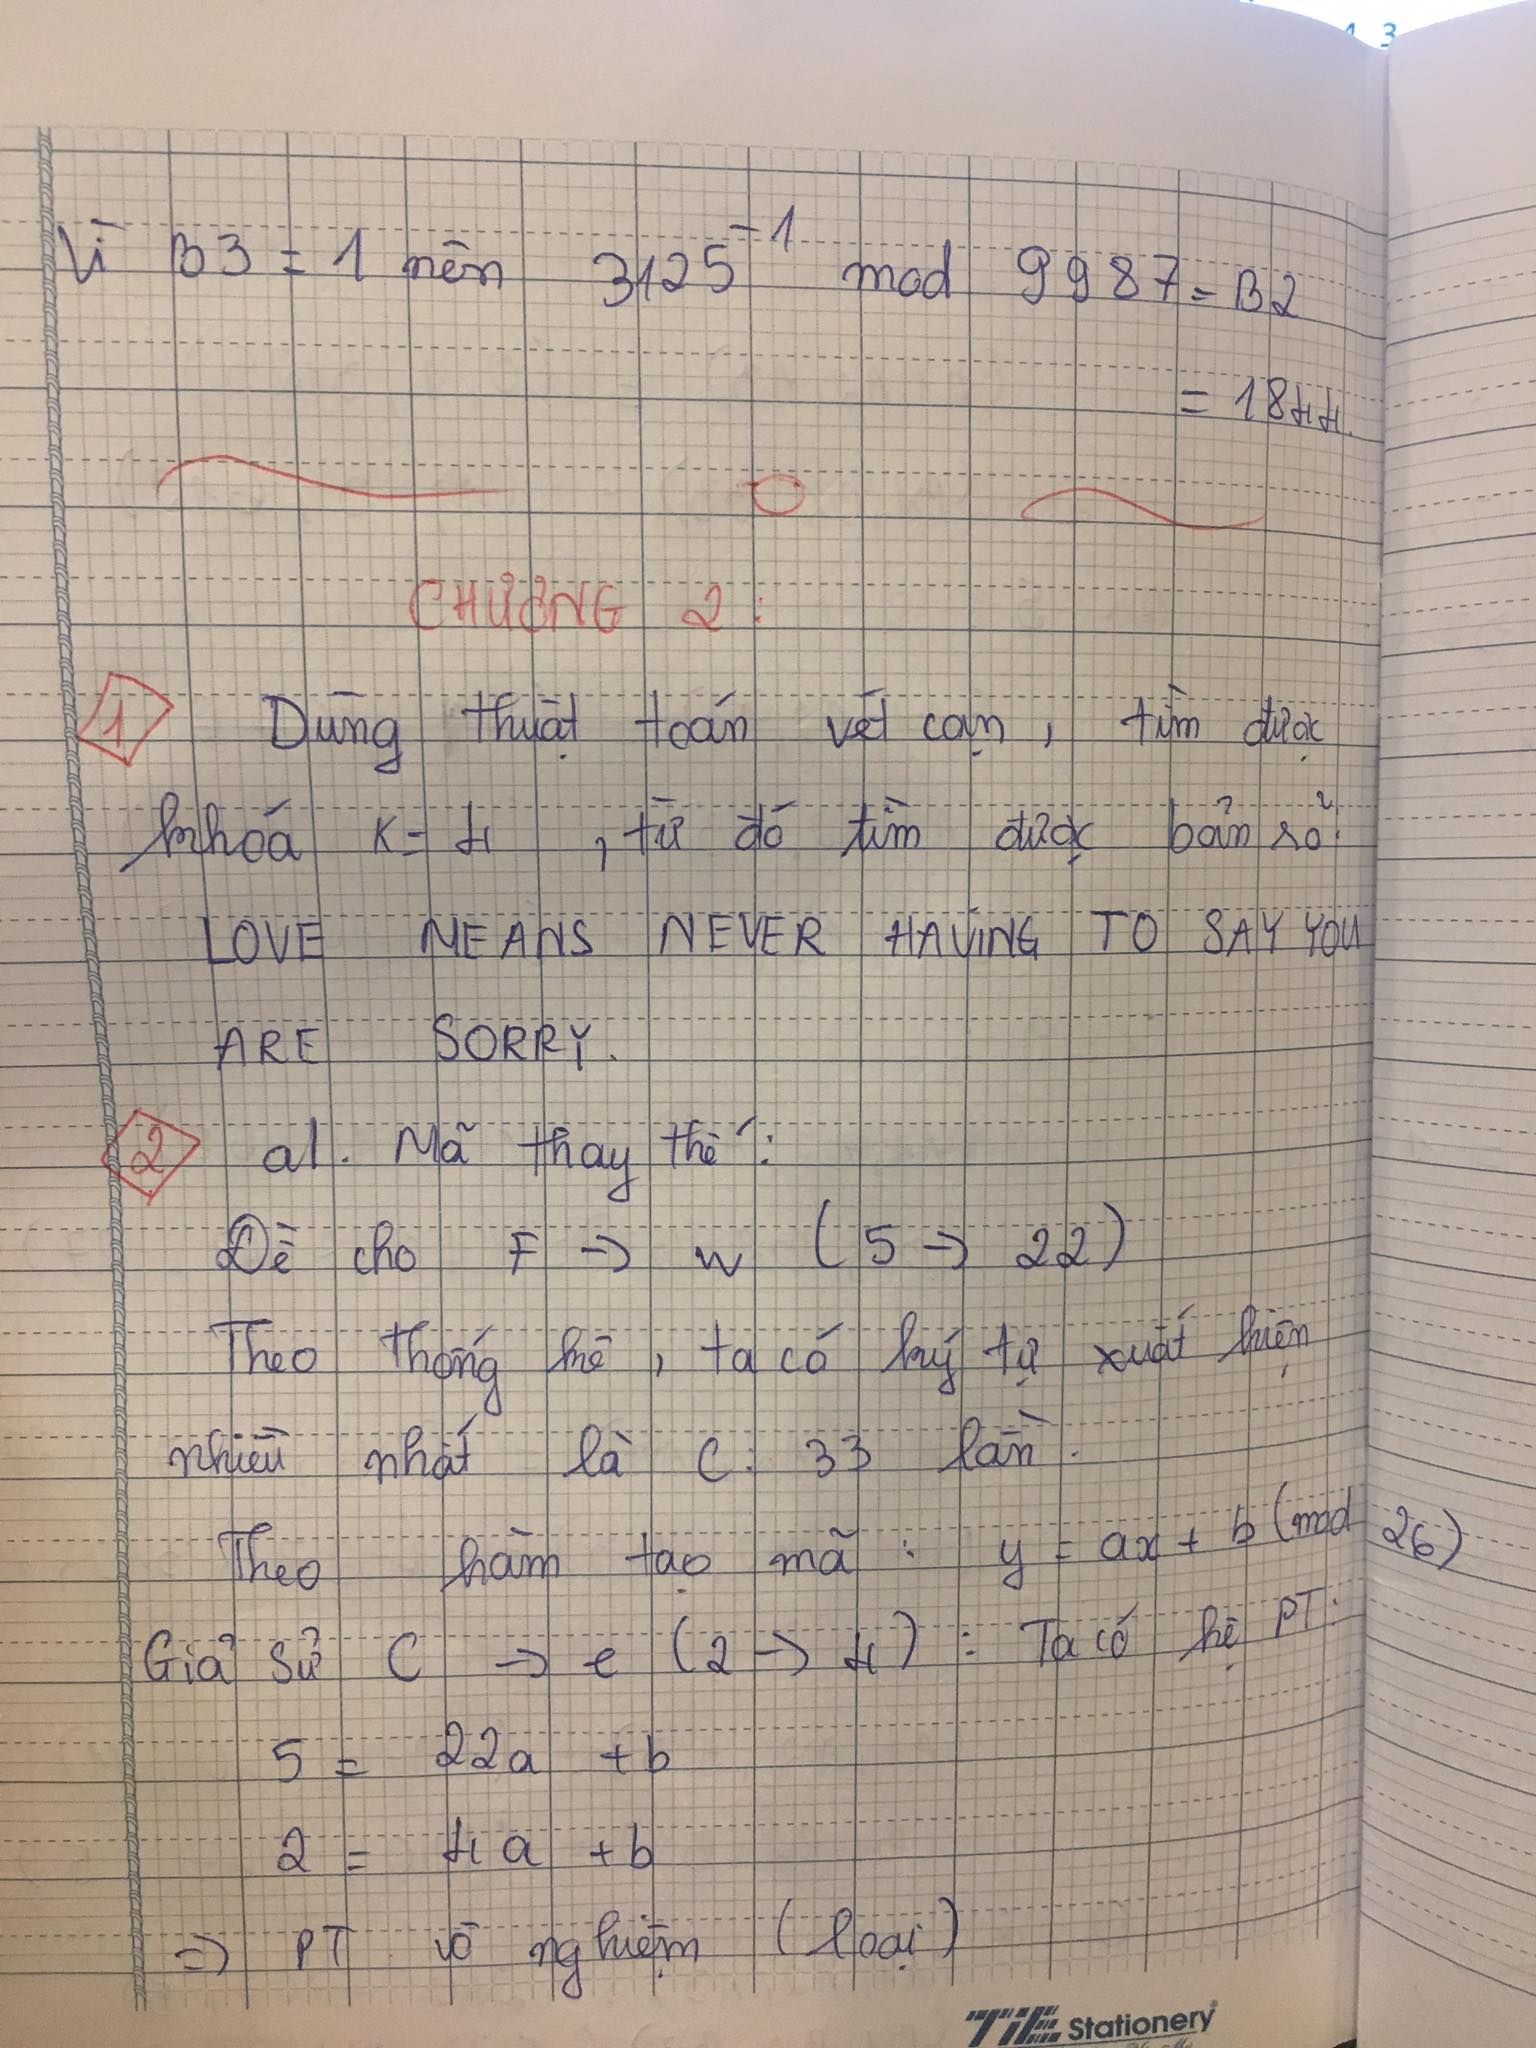 Vì B3 = 1 nên 3125⁻¹ mod 9987 = B2
= 1844.
CHƯƠNG 2:
1 Dùng thuật toán vét cạn, tìm được
khoá K = 4, từ đó tìm được bản rõ:
LOVE MEANS NEVER HAVING TO SAY YOU
ARE SORRY.
2 a/. Mã thay thế:
Đề cho F → w (5 → 22)
Theo thống kê, ta có ký tự xuất hiện
nhiều nhất là C: 33 lần.
Theo hàm tạo mã: y = ax + b (mod 26)
Giả sử C → e (2 → 4): Ta có hệ PT:
5 = 22a + b
2 = 4a + b
=> PT vô nghiệm (loại)
TiE Stationery